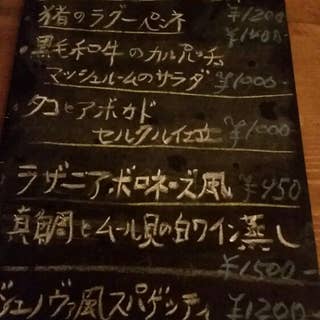 猪のラグーペンネ ¥1200
黒毛和牛のカルパッチョ ¥1400-
マッシュルームのサラダ ¥1000-
タコとアボカド
セルクル仕立 ¥1000-
ラザニアボロネーズ風 ¥950
真鯛とムール貝の白ワイン蒸し
¥1500-
ジェノヴァ風スパゲッティ ¥1200-